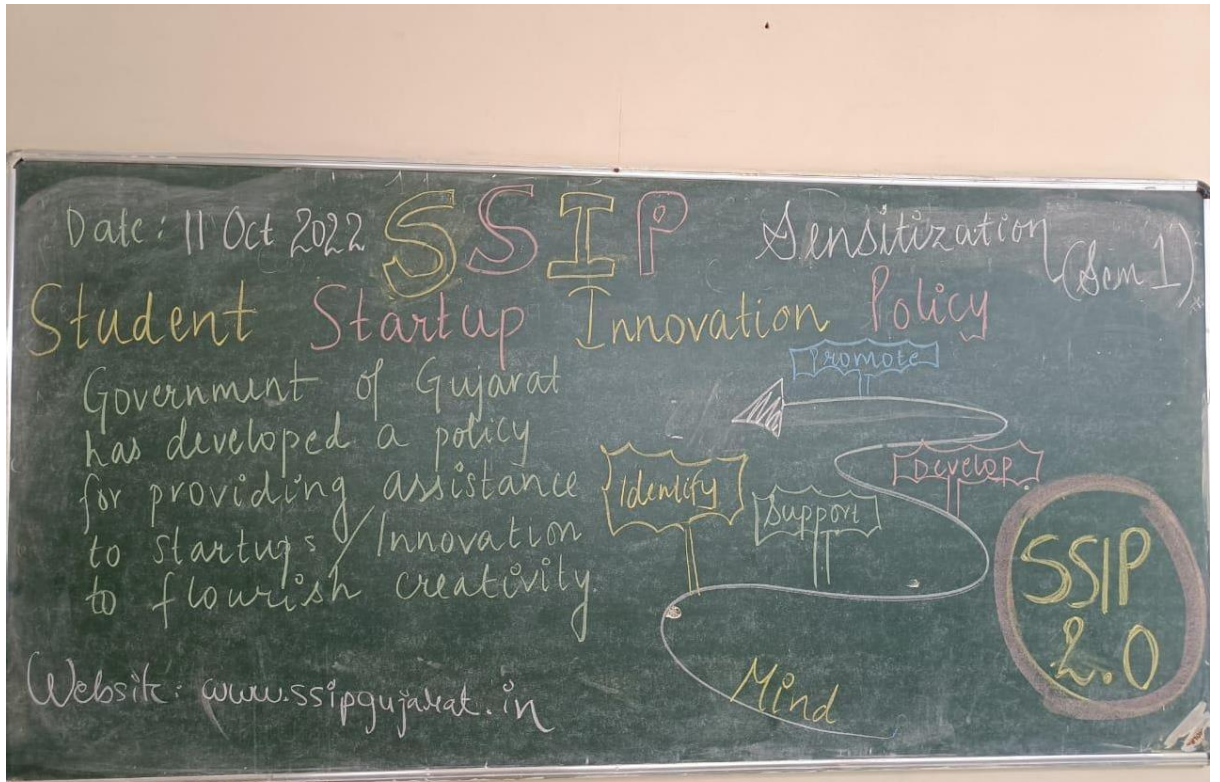 Date: 11 Oct 2022
SSIP
Sensitization
(Sem 1)
Student Startup Innovation Policy
Government of Gujarat
has developed a policy
for providing assistance
to startups/Innovation
to flourish creativity.
Website: www.ssipgujarat.in
Promote
Develop
Identify
Support
Mind
SSIP
2.0